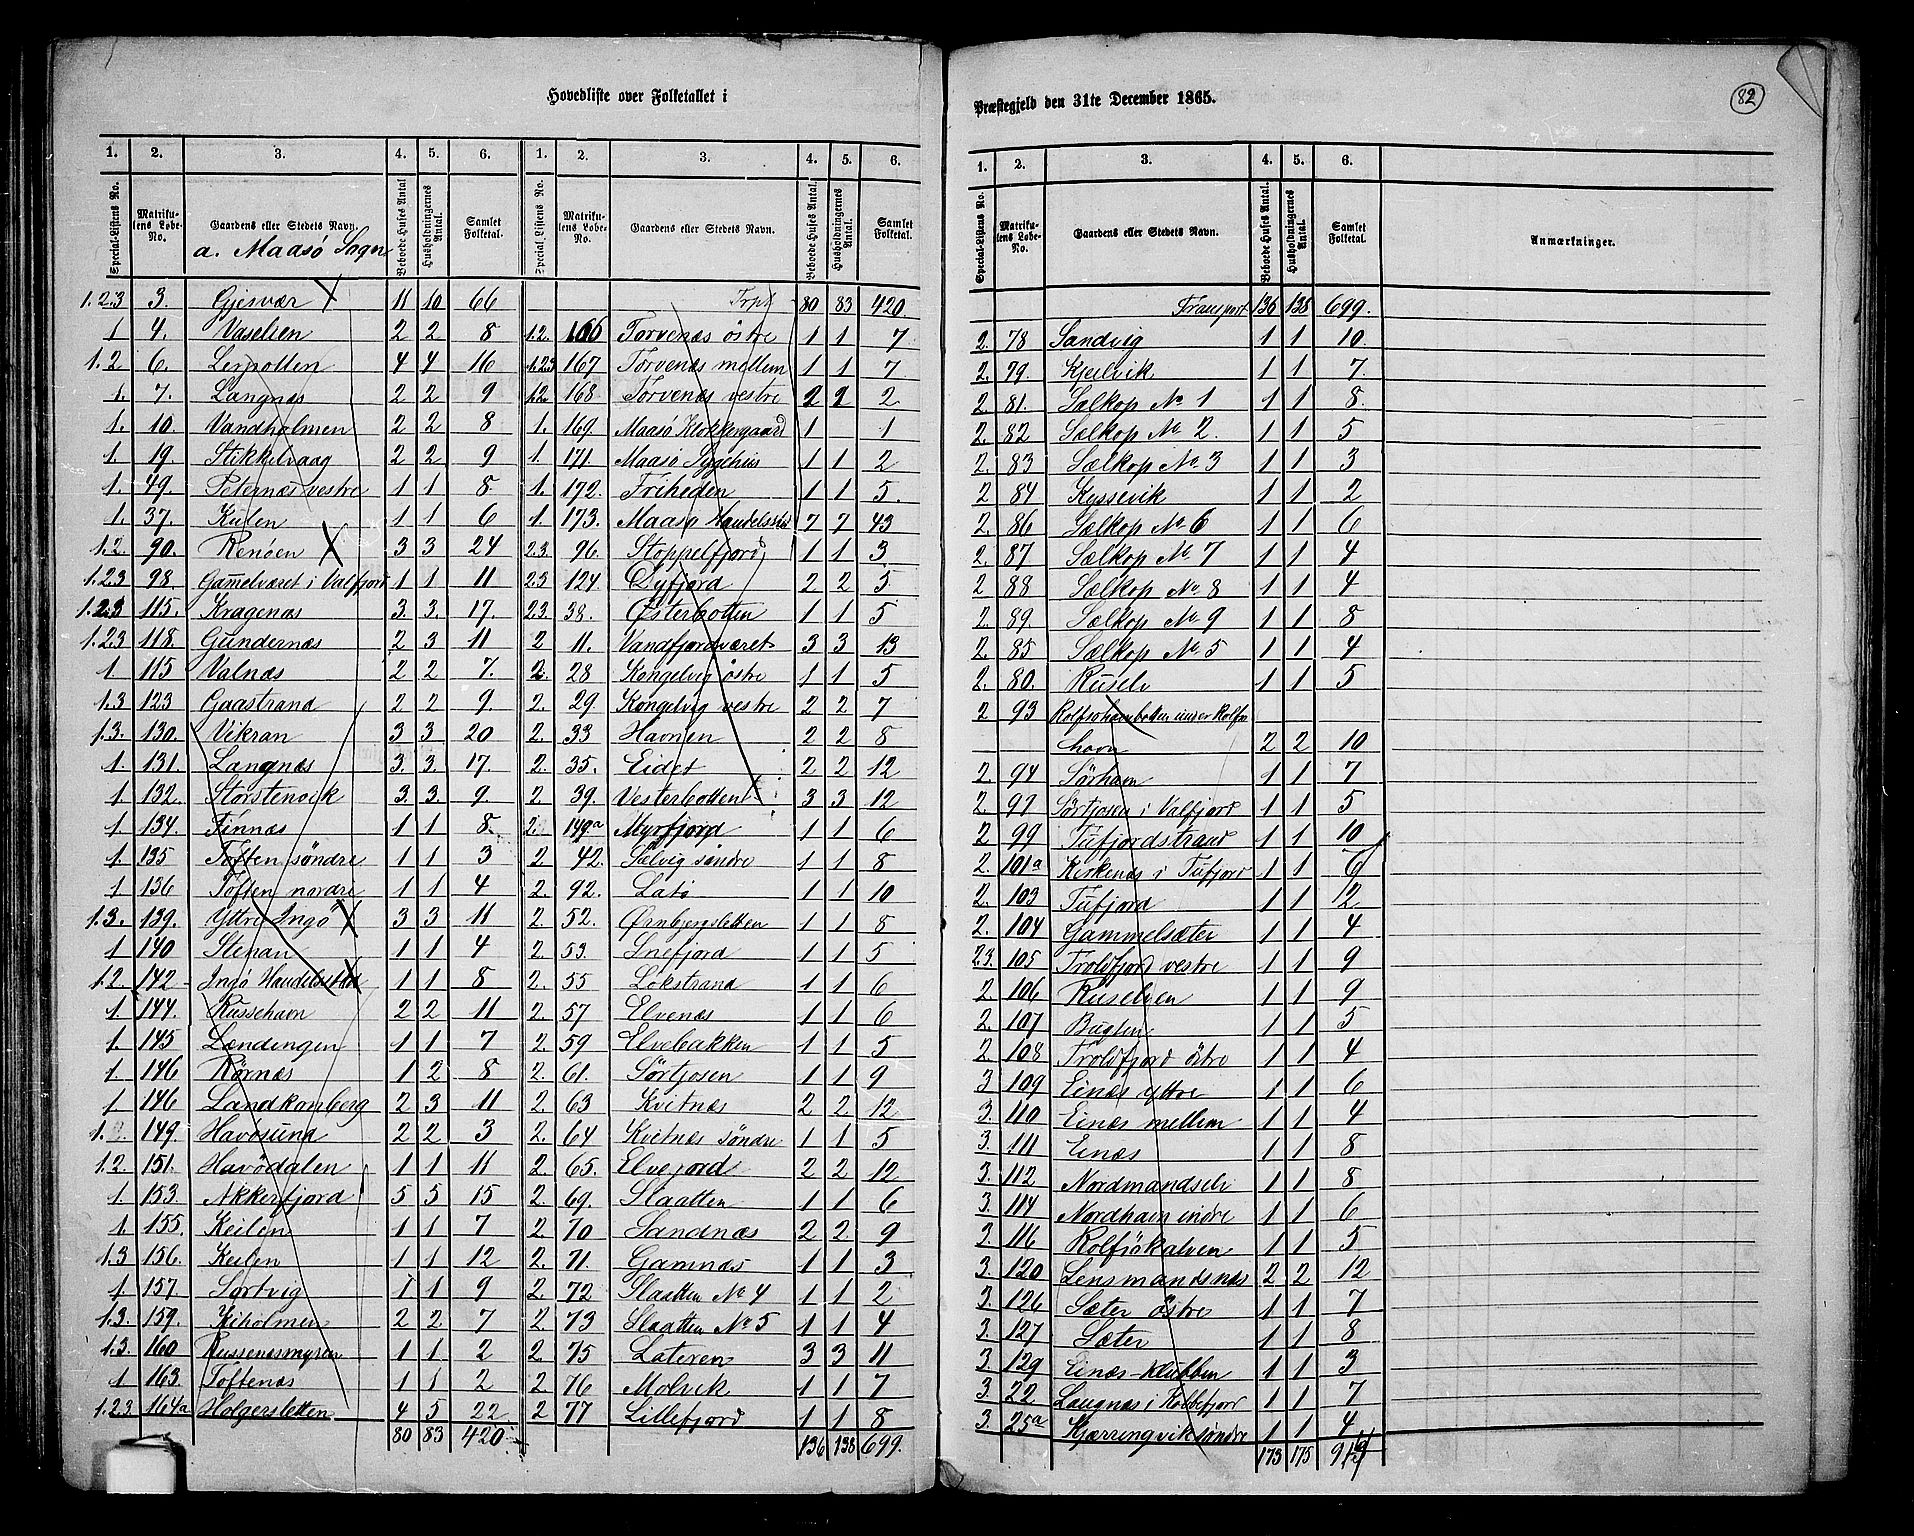 Hovedliste over Folketallet i
1. 2. 3. 4. 5. 6. 1. 2. 3. 4. 5. 6.
Special-Listens No. Matrikulens Løbe-No. Gaardens eller Stedets Navn. Beboede Huses Antal Husholdningernes Antal. Samlet Folketal. Special-Listens No. Matrikulens Løbe-No. Gaardens eller Stedets Navn. Beboede Huses Antal. Husholdningernes Antal. Samlet Folketal.
a. Maasø Sogn
1.2.3 3. Gjesvær 11 10 66
1 4. Vaselien 2 2 8
1.2 6. Lerpollen 4 4 16
1. 7. Langnæs 2 2 9
1. 10. Vandholmen 2 2 8
1. 19. Stikkelvaag 2 2 9
1. 49. Peternæs vestre 1 1 8.
1. 37. Kulen 1 1 6
1.2. 90. Renøen 3 3 24
1.2.3 98 Gamelværet i Valfjord 1 1 11
1.2.3 115. Kragenæs 3. 3. 17.
1.2.3 118. Gundernæs 2 3 11
1. 115 Valnæs 2 2 7.
1.3 123 Gaastrand 2 2 9.
1.3. 130. Vikran 3 3 20
1. 131. Langnæs 3. 3. 17.
1. 132. Storstenvik 3. 3. 9.
1 134. Finnæs 1 1 8.
1. 135 Toften søndre 1 1 3
1. 136 Toften nordre 1 1 4
1.3. 139. Yttre Ingø 3 3 11
1 140 Stenan 1 1 4
1.2. 142 Ingø Handelssted 1 1 8
1. 144. Russehavn 2 2 11
1. 145 Lændingen 1 1 7
1. 146 Rørnæs 1 2 8
1 146 Landkonberg 2 3 11
149. Havøsund 2 2 3
1.2. 151. Havødalen 1 1 11
1 153. Akkerfjord 5 5 15
1. 155. Keilen 1 1 7
1.3 156. Keilen 1 1 12
1 157 Sortvig 1 1 9
1.3. 159. Keholmen 2 2 7
1.3. 160 Russenæsmyren 1 1 2
1 163. Toftenæs 1 1 2
1.2.3 164a Holgersletten 4 5 22.
80 83 420.
Trpt 80 83 420
1.2. 166 Torvenæs østre 1 1 7
1.2.3 167 Torvenæs mellem 1 1 7
1.2. 168. Torvenæs vestre 2 2 2
1. 169. Maasø Klokkergaard 1 1
1. 171. Maasø Sygehus 1 1 2
1. 172. Friheden 1 1 5.
1. 173. Maasø Handelssted 7 7 43
2.3. 96. Stoppelfjord 1 1 3
2.3 124. Øyfjord 2 2 5
2.3. 38. Østerbotten 1 1 5
2 11. Vandfjordværet 3 3 13
2. 28 Kongelvig østre 1 1 5
2. 29 Kongelvig vestre 2 2 7
2. 33 Havnen 2 2 8
2. 35. Eidet 2 2 12
2. 39. Vesterbotten 3 3 12
2. 149a Myrfjord 1 1 6
2 42. Selvig søndre 1 1 8
2. 92. Latø 1 1 10
2. 52. Ørnbjergsletten 1 1 8
2. 53. Snefjord 1 1 5
2. 55 Lokstrand 1 1 6
2. 57 Elvenæs 1 1 6
2. 59 Elvebakken 1 1 5
2. 61. Sørtjosen 1 1 9
2. 63 Kvitnæs 2 2 12
2. 64 Kvitnæs søndre 1 1 5
2. 65. Elvefjord 2 2 12
2. 69. Slaatten 1 1 6
2. 70 Sandnæs 2 2 9
2. 71. Gamnæs 1 1 3
2. 72 Slaatten No 4 1 1 2
2. 73 Slaatten No 5 1 1 4
2. 75 Lateren 3 3 11
2. 76 Molvik 1 1 7
2 77 Lillefjord 1 1 8
136 138 699.
82
Præstegjeld den 31te December 1865.
1. 2. 3. 4. 5. 6.
Special-Listens No. Matrikulens Løbe-No. Gaardens eller Stedets Navn. Beboede Huses Antal. Husholdningernes Antal. Samlet Folketal. Anmærkninger.
Transport 136 138 699.
2. 78 Sandvig 1 1 10.
2. 79. Kjeilvik 1 1 7
2. 81. Sælkop No 1 1 1 8.
2. 82 Sælkop No 2. 1 1 5
2. 83 Sælkop No 3 1 1 3
2 84 Kyssevik 1 1 2
2. 86 Sælkop No 6 1 1 6
2. 87 Sælkop No 7 1 1 4
2 88 Sælkop No 8 1 1 4
2. 89 Sælkop No 9 1 1 8
2. 85 Sælkop No 5 1 1 4
2. 80. Ruselv 1 1 5
2 93 Rolfsøhavnbotten under Rolfsø
havn 2 2 10
2. 94 Sørhavn 1 1 7
2. 97 Sørtjosen i Valfjord 1 1 5
2 99 Tufjordstrand 1 1 10
2. 101a Kirkenæs i Tufjord 1 1 6
2. 103 Tufjord 1 1 12
2. 104 Gammelsæter 1 1 4
2.3. 105 Troldfjord vestre 1 1 9
2. 106 Ruselven 1 1 9
2. 107 Bugten 1 1 5
2. 108 Troldfjord østre 1 1 4
3 109 Einæs yttre 1 1 6
3. 110 Einæs mellem 1 1 4
3. 111 Einæs 1 1 8
3. 112 Nordmandselv 1 1 8
3. 114 Nordhavn indre 1 1 6
3. 116 Rolfsøkalven 1 1 5
3. 120 Lensmandsnæs 2 2 12
3. 126 Sæter østre 1 1 7
3. 127 Sæter 1 1 8
3. 129 Einæs-klubben 1 1 3
3. 22 Langnæs i Kobbefjord 1 1 7
3. 25a Kjærringvik søndre 1 1 4
173 175